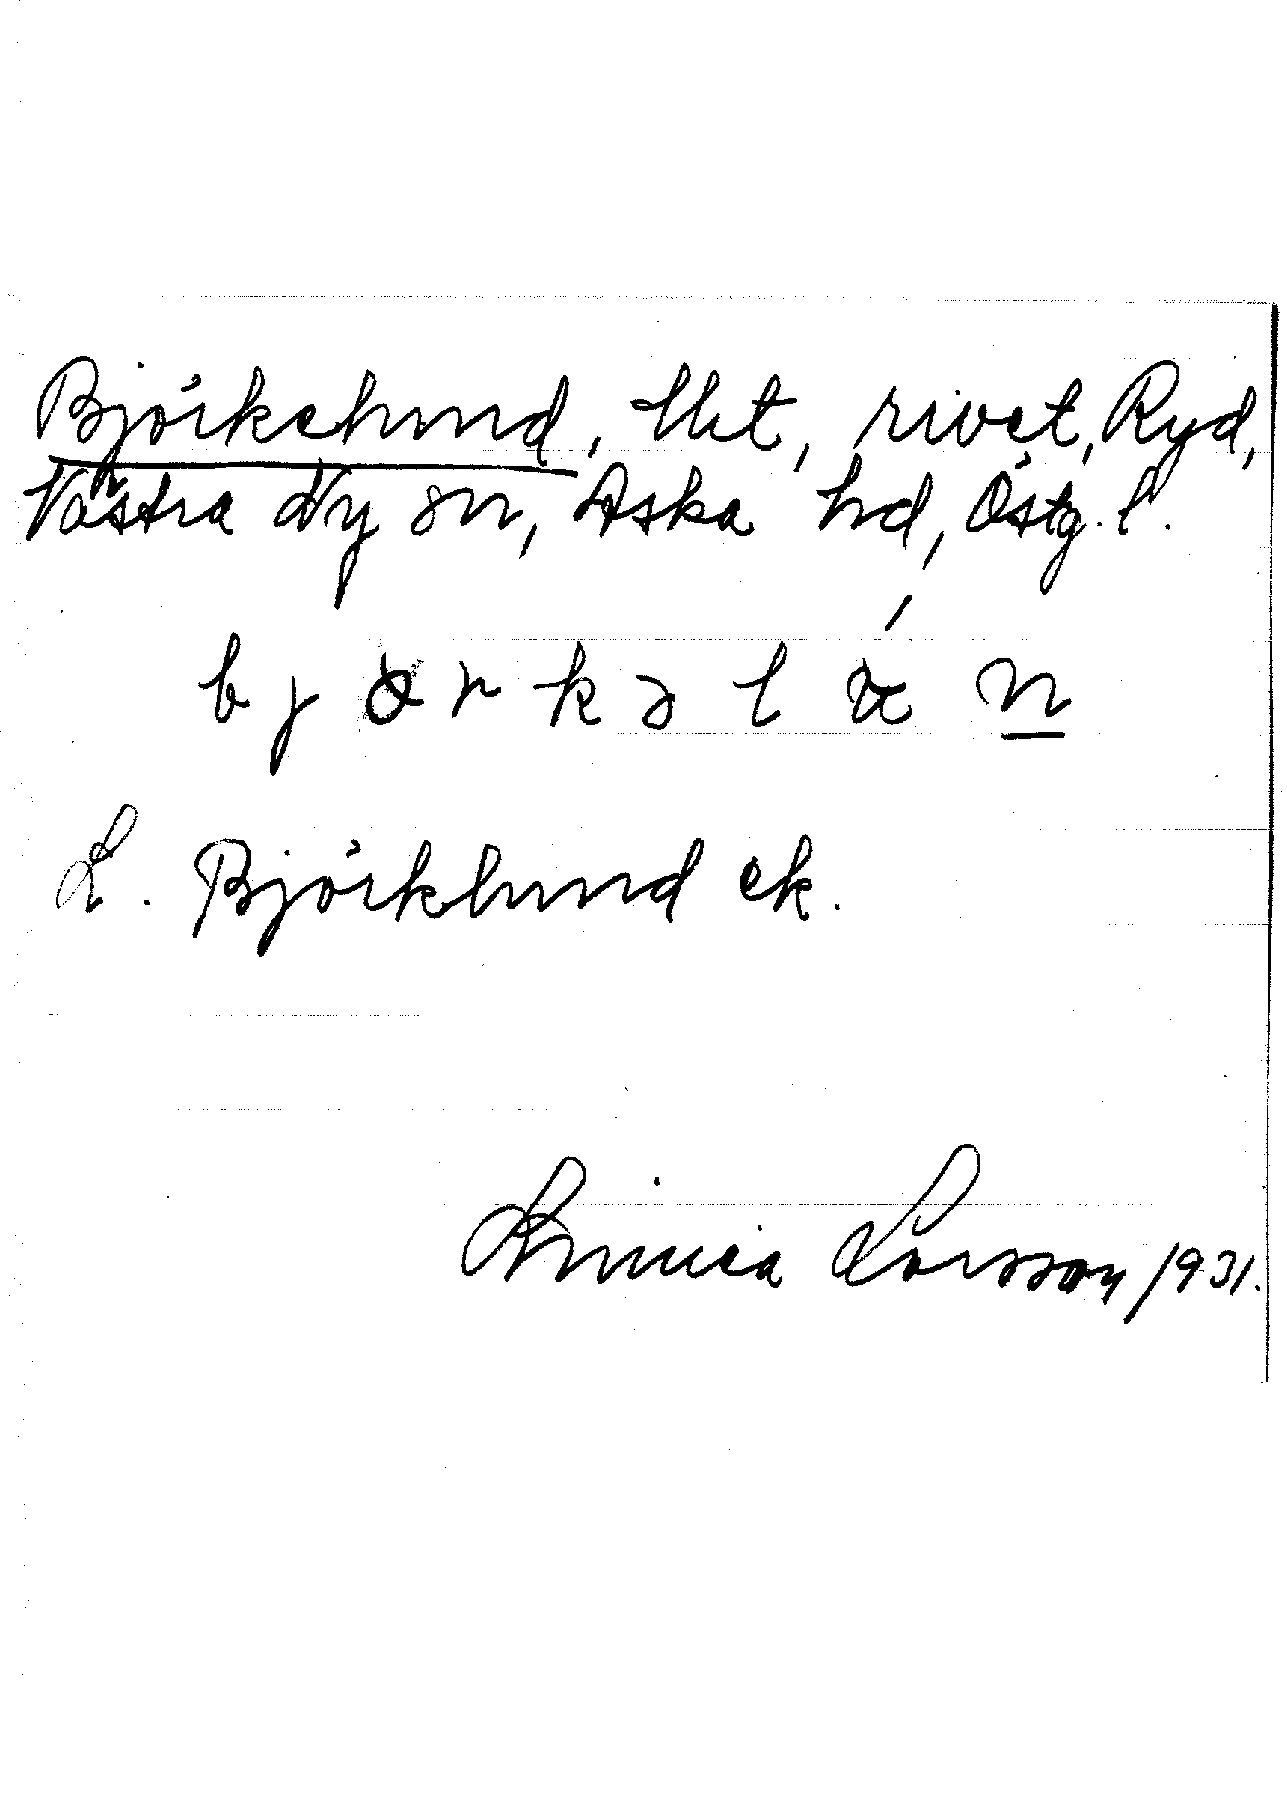 Björkelund, lht, rivet, Ryd,
Västra Ny sn, Aska hd, Östg. l.
b j ö r k ə l ú n
L. Björklund ek.
Linnea Larsson 1931.